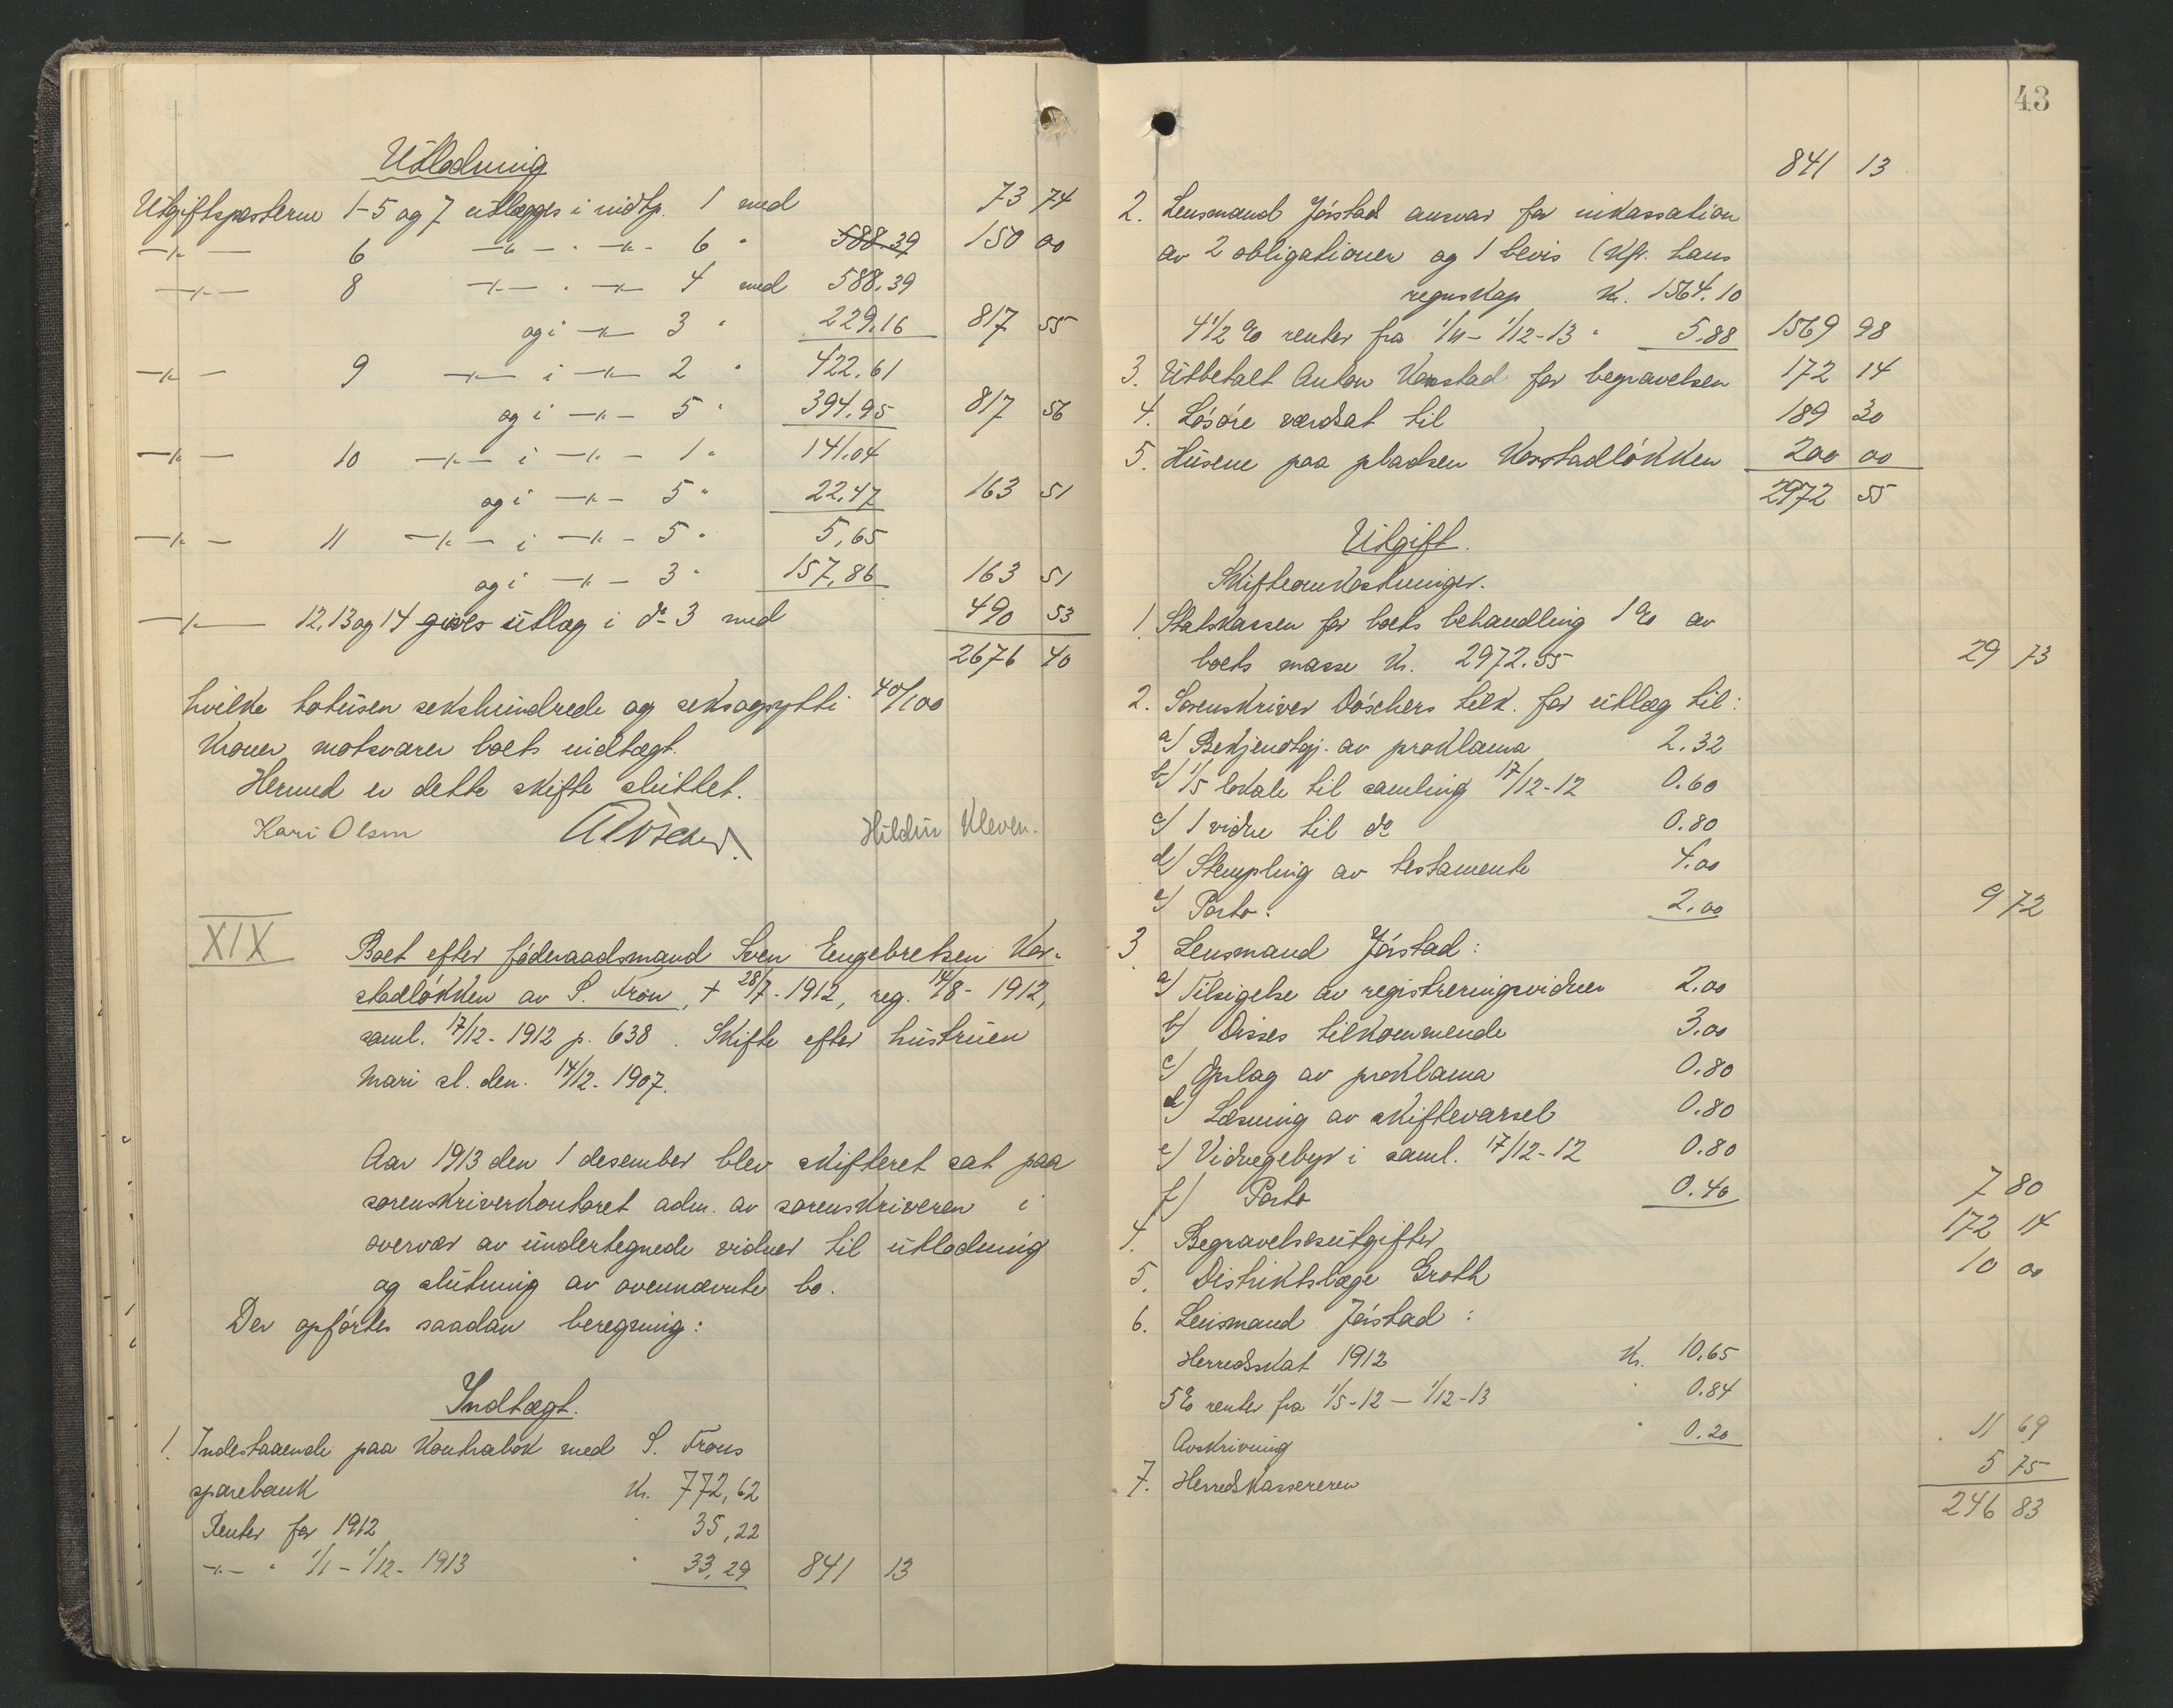 Utlodning
Utgiftsposterne 1-5 og 7 utlægges i indtg. 1 med 73 74
-"- 6 -"- . -"- 6 " 588.39 150 00
-"- 8 -"- . -"- 4 med 588.39
og i -"- 3 " 229.16 817 55
-"- 9 -"- i -"- 2 " 422.61
og i -"- 5 " 394.95 817 56
-"- 10 -"- i -"- 1 " 141.04
og i -"- 5 " 22.47 163 51
-"- 11 -"- i -"- 5 " 5,65
og i -"- 3 " 157,86 163 51
-"- 12, 13 og 14 gives utlæg i do 3 med 490 53
2676 40
hvilke totusen sekshundrede og seksogsytti 40/100
kroner motsvarer boets indtægt.
Hermed er dette skifte sluttet.
Kari Olsen Hildur Kleven.
XIX
Boet efter föderaadsmand Sven Engebretsen Vor-
stadlökken av S. Fron, + 28/7-1912, reg. 14/8-1912,
saml. 17/12-1912 p. 638. Skifte efter hustruen
Mari sl. den. 14/12-1907.
Aar 1913 den 1 desember blev skifteret sat paa
sorenskriverkontoret adm. av sorenskriveren i
overvær av undertegnede vidner til utlodning
og slutning av ovennævnte bo.
Der opförtes saadan beregning:
Indtægt.
1. Indestaaende paa kontrabok med S. Frons
sparebank Kr. 772,62
Renter for 1912 " 35,22
-"- " 1/1-1/12-1913 " 33,29 841 13
43
841 13
2. Lensmand Jörstad ansvar for inkassation
av 2 obligationer og 1 bevis (Kfr. hans
regnskap Kr. 1564.10
4 1/2 % renter fra 1/11-1/12-13 " 5.88 1569 98
3. Utbetalt Anton Vorstad for begravelsen 172 14
4. Lösöre værdsat til 189 30
5. Husene paa pladsen Vorstadlökken 200 00
2972 55
Utgift.
Skifteomkostninger.
1. Statskassen for boets behandling 1 % av
boets masse Kr. 2972.55 29 73
2. Sorenskriver Döschers tilk. for utlæg til:
a) Bekjendtgj. av proklama 2.32
b) 1/5 lokale til samling 17/12-12 0.60
c) 1 vidne til do 0.80
d) Stempling av testamente 4.00
e) Porto. 2.00 9 72
3 Lensmand Jörstad:
a) Tilsigelse av registreringsvidner 2.00
b) Disses tilkommende 3.00
c) Opslag av proklama 0.80
d) Læsning av skiftevarsel 0.80
e) Vidnegebyr i saml. 17/12-12 0.80
f) Porto 0.40 7 80
4. Begravelsesutgifter 172 14
5. Distriktslæge Groth 10 00
6. Lensmand Jörstad:
Herredsskat 1912 Kr. 10.65
5 % renter fra 1/5-12 — 1/12-13 " 0.84
Avskrivning " 0.20 11 69
7. Herredskassereren 5 75
246 83